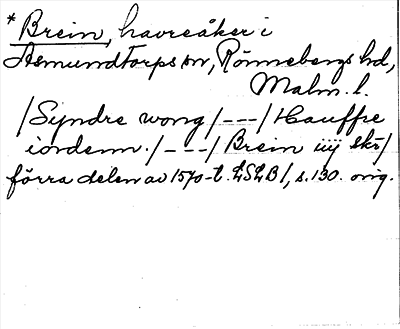 * Brein, havreåker i
Asmundtorps sn, Rönnebergs hd,
Malm. l.
/Syndre wong/---/Hauffre
iordenn./---/Brein iiij skr/
förra delen av 1570-t. LSLB 1, s. 130. orig.